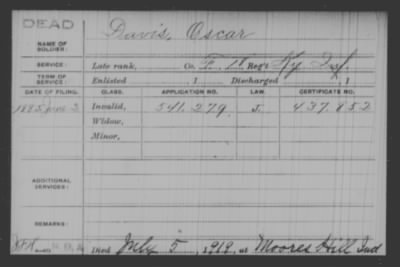 DEAD
NAME OF SOLDIER: Davis, Oscar
SERVICE: Late rank, Co. F. 18 Reg't Ky. Inf.
TERM OF SERVICE: Enlisted , 1 Discharged , 1
DATE OF FILING. CLASS. APPLICATION NO. LAW. CERTIFICATE NO.
1885 June 2 Invalid, 541.279 J. 437.852
Widow,
Minor,
ADDITIONAL SERVICES:
REMARKS:
Died July 5, 1919, at Moores Hill Ind